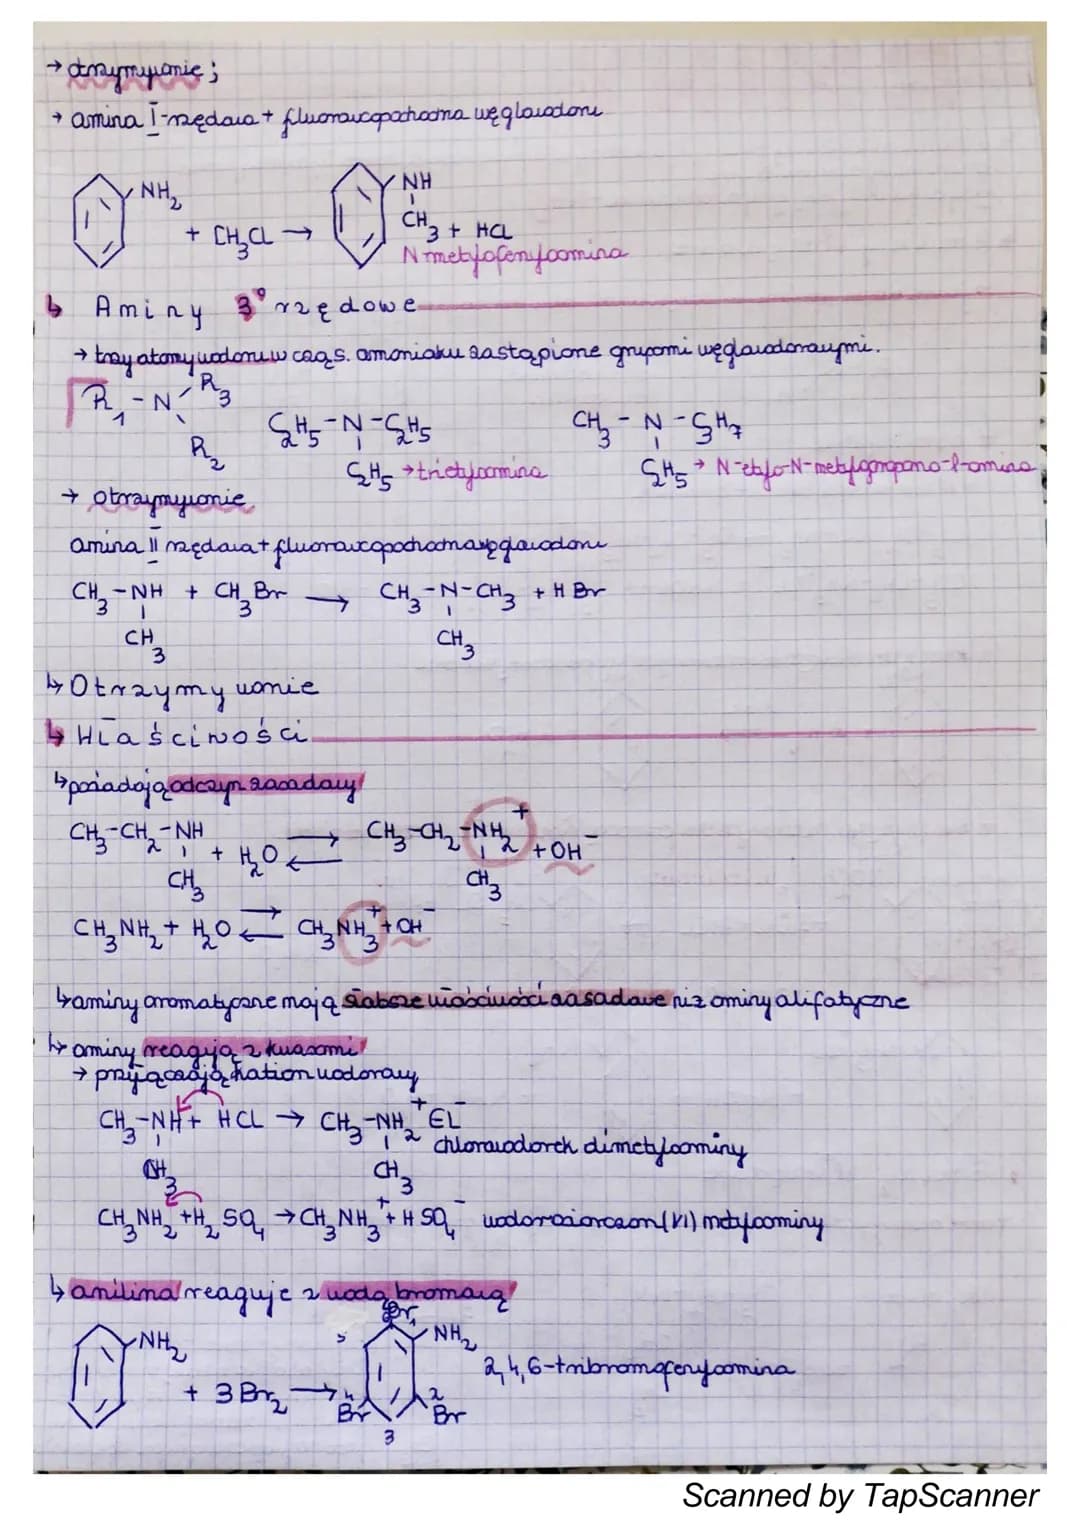 → otrzymywanie;
→ amina I-rzędowa + fluorowcopochodna węglowodoru
NH₂ + CH₃Cl → NH
CH₃ + HCl
N-metylofenyloamina
↳ Aminy 3° rzędowe
→ trzy atomy wodoru w cząs. amoniaku zastąpione grupami węglowodorowymi.
R₁ - N - R₃
R₂
C₂H₅-N-C₂H₅ CH₃ - N - C₃H₇
C₂H₅ → trietyloamina C₂H₅ → N-etylo-N-metylopropano-1-amina
→ otrzymywanie
amina II rzędowa + fluorowcopochodna węglowodoru
CH₃-NH + CH₃Br → CH₃-N-CH₃ + HBr
CH₃ CH₃
↳ Otrzymywanie
↳ Właściwości
↳ posiadają odczyn zasadowy
CH₃-CH₂-NH + H₂O ⇄ CH₃-CH₂-NH₂⁺ + OH⁻
CH₃ CH₃
CH₃NH₂ + H₂O ⇄ CH₃NH₃⁺ + OH⁻
↳ aminy aromatyczne mają słabsze właściwości zasadowe niż aminy alifatyczne
↳ aminy reagują z kwasami
→ przyłączają kation wodorowy
CH₃-NH + HCl → CH₃-NH₂⁺ Cl⁻
CH₃ CH₃ chlorowodorek dimetyloaminy
CH₃NH₂ + H₂SO₄ → CH₃NH₃⁺ + HSO₄⁻ wodorosiarczan(VI) metyloaminy
↳ anilina reaguje z wodą bromową
Br
NH₂ 5 1 NH₂
2,4,6-tribromofenyloamina
+ 3Br₂ → 4 2
Br Br
3
Scanned by TapScanner